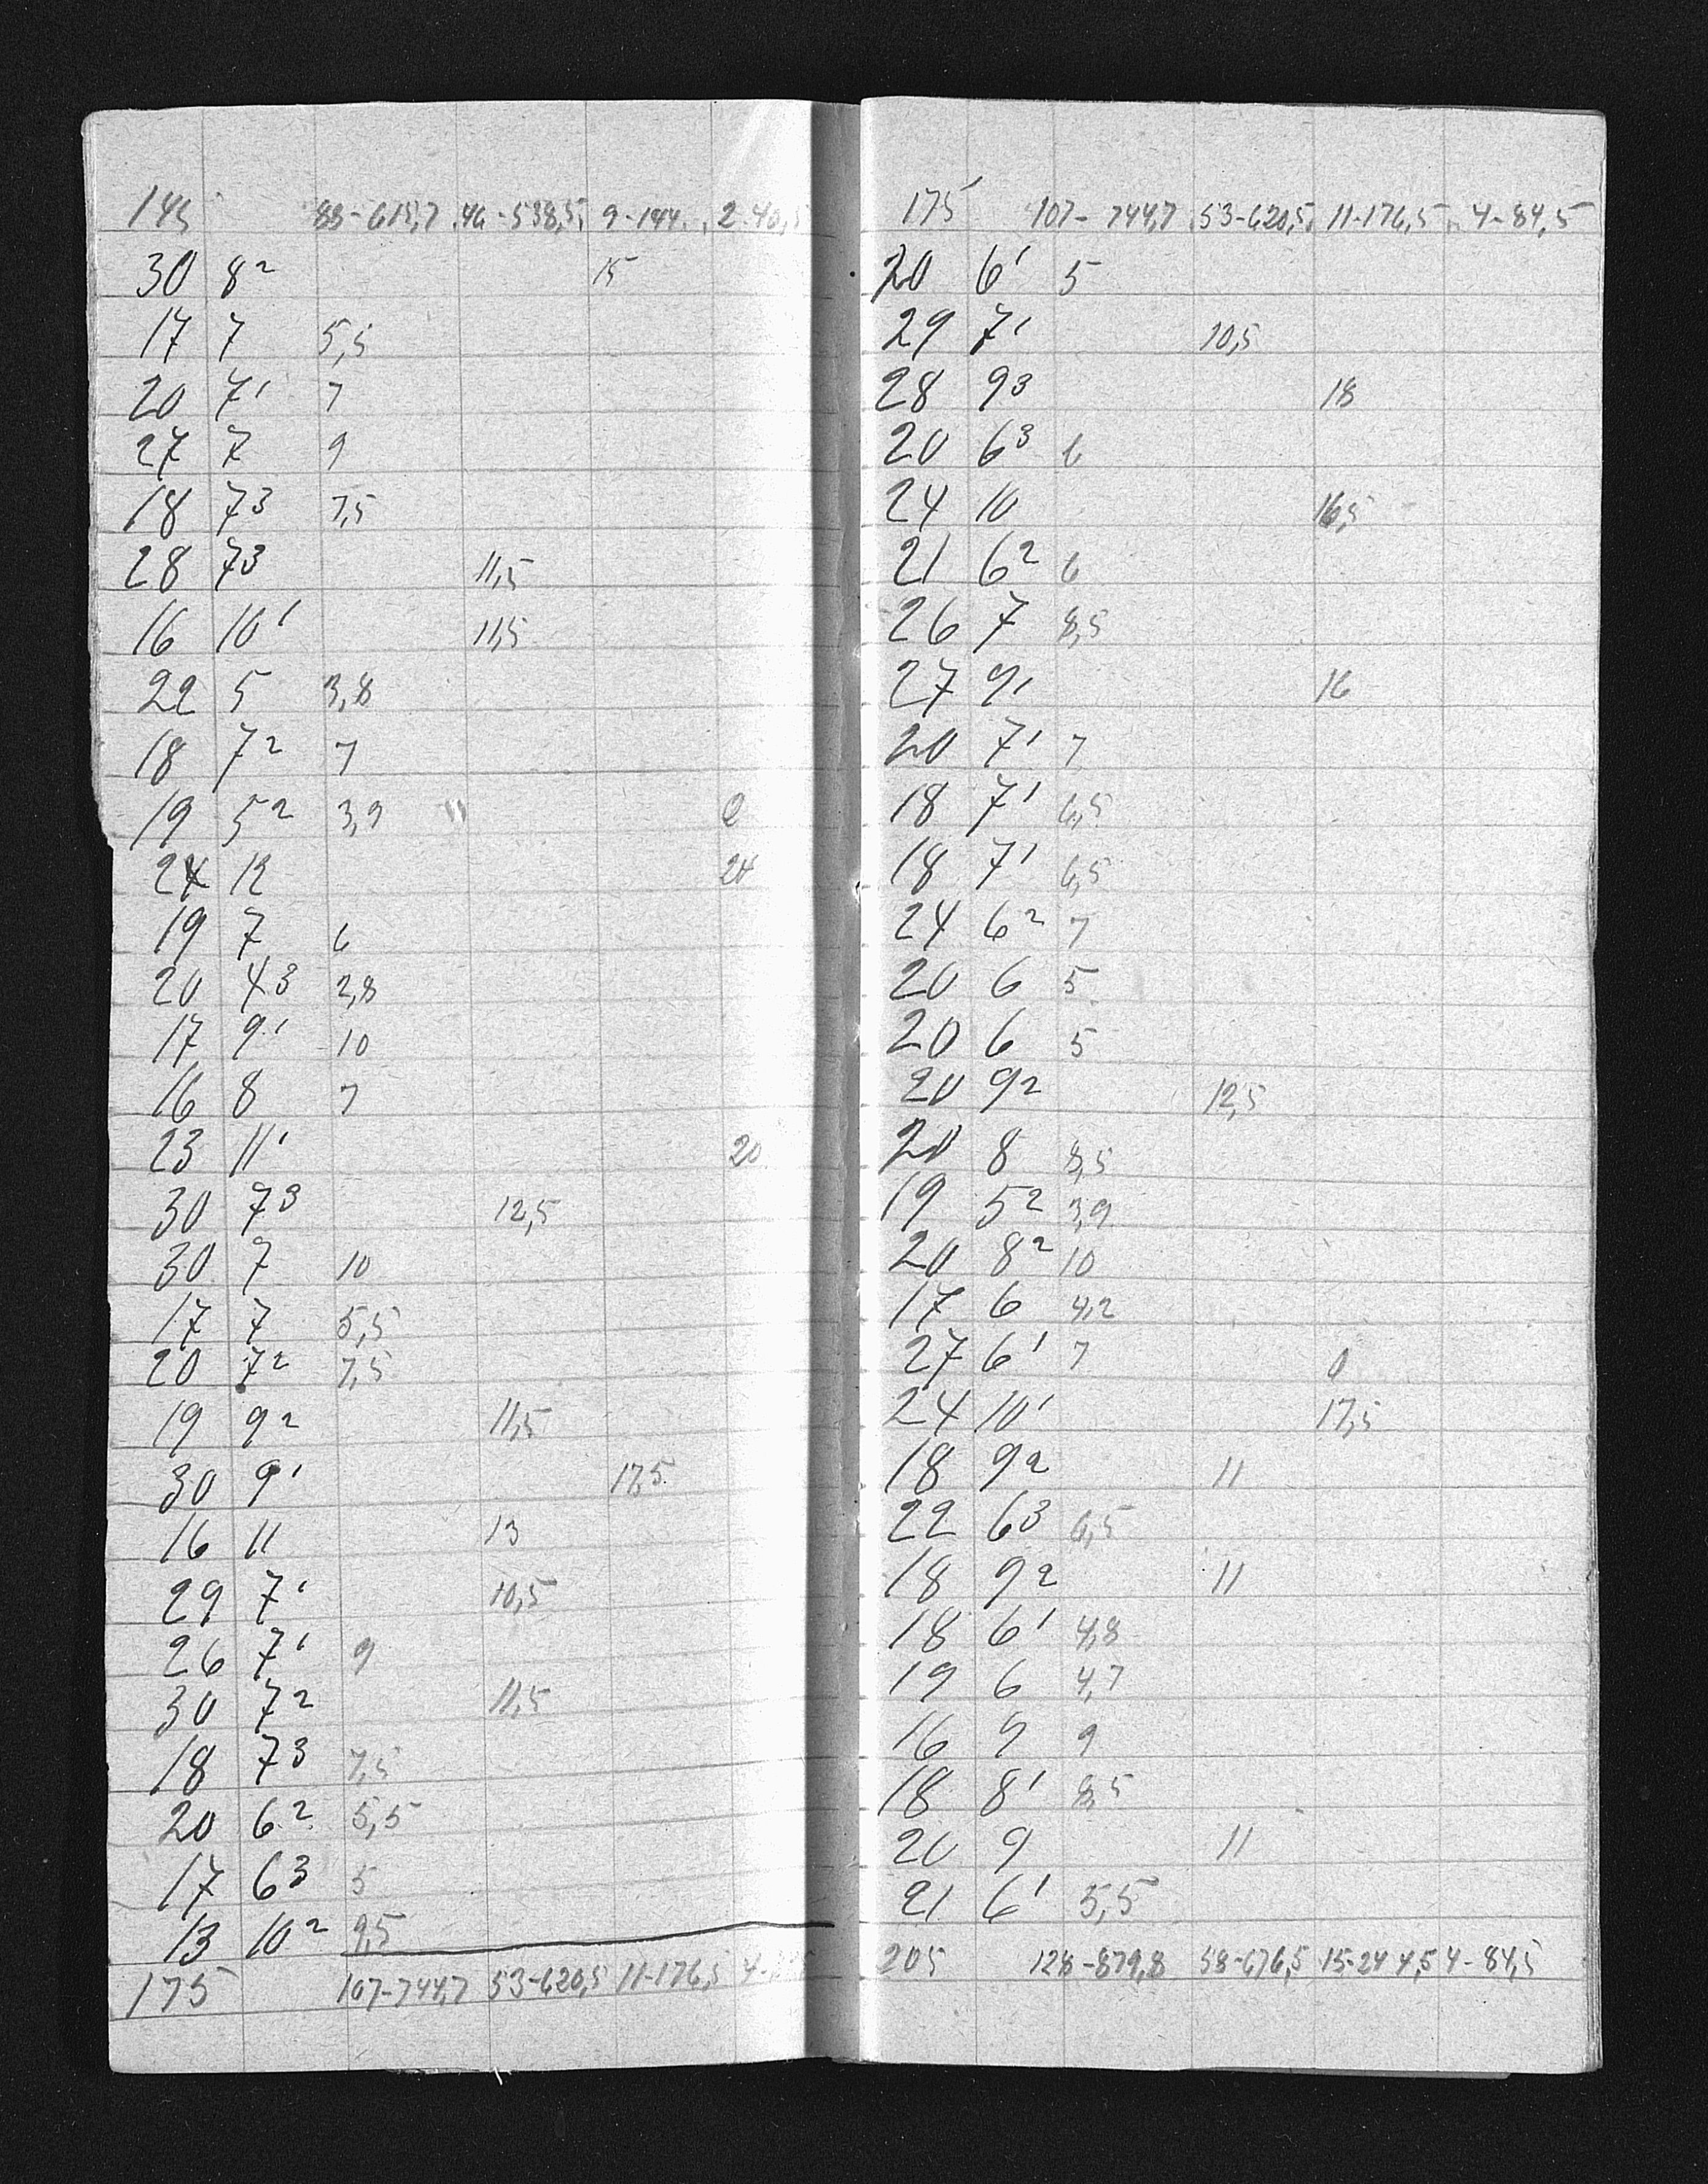 145 88-615,7 46-538,5 9-144 2-40,5
30 8² 15
17 7 5,5
20 7' 7
27 7 9
18 7³ 7,5
28 7³ 11,5
16 10' 11,5
22 5 3,8
18 7² 7
19 5² 3,9
24 12 24
19 7 6
20 4³ 2,8
17 9' 10
16 8 7
23 11' 20
30 7³ 12,5
30 7 10
17 7 5,5
20 7² 7,5
19 9² 11,5
30 9' 17,5
16 11 13
29 7' 10,5
26 7' 9
30 7² 11,5
18 7³ 7,5
20 6² 5,5
17 6³ 5
13 10² 9,5
175 107-744,7 53-620,5 11-176,5 4-
175 107-744,7 53-620,5 11-176,5 4-84,5
20 6' 5
29 7' 10,5
28 9³ 18
20 6³ 6
24 10 16,5
21 6² 6
26 7 8,5
27 9' 16
20 7' 7
18 7' 6,5
18 7' 6,5
24 6² 7
20 6 5
20 6 5
20 9² 12,5
20 8 8,5
19 5² 3,9
20 8² 10
17 6 4,2
27 6' 7
24 10' 17,5
18 9² 11
22 6³ 6,5
18 9² 11
18 6' 4,8
19 6 4,7
16 9 9
18 8' 8,5
20 9 11
21 6' 5,5
205 128-879,8 58-676,5 15-244,5 4-84,5